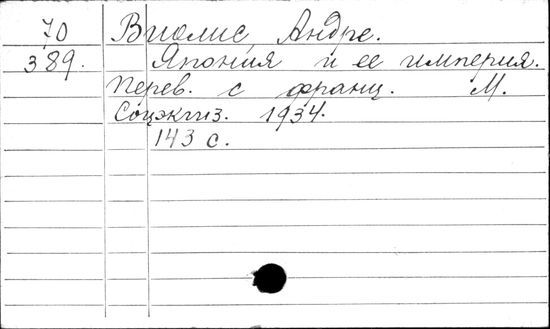 70 Виолис, Андре.
389. Япония и ее империя.
Перев. с франц. М.
Соцэкгиз. 1934.
143 с.